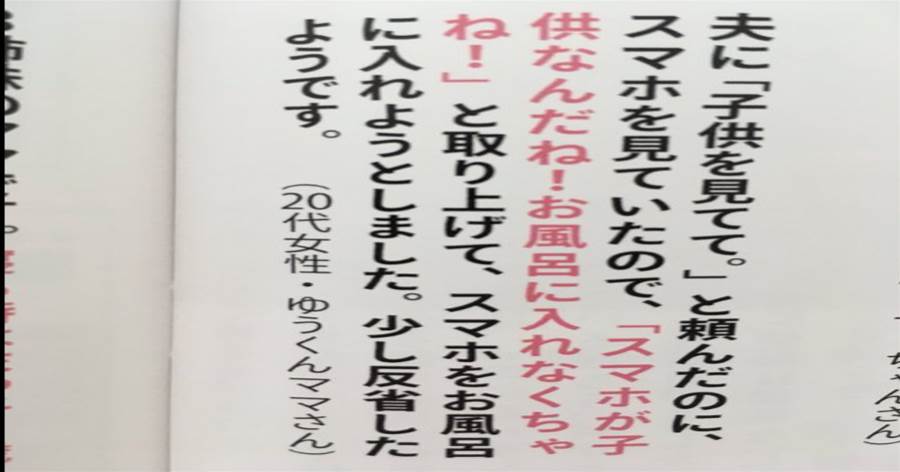 夫に「子供を見てて。」と頼んだのに、
スマホを見ていたので、「スマホが子
供なんだね！お風呂に入れなくちゃ
ね！」と取り上げて、スマホをお風呂
に入れようとしました。少し反省した
ようです。　（20代女性・ゆうくんママさん）